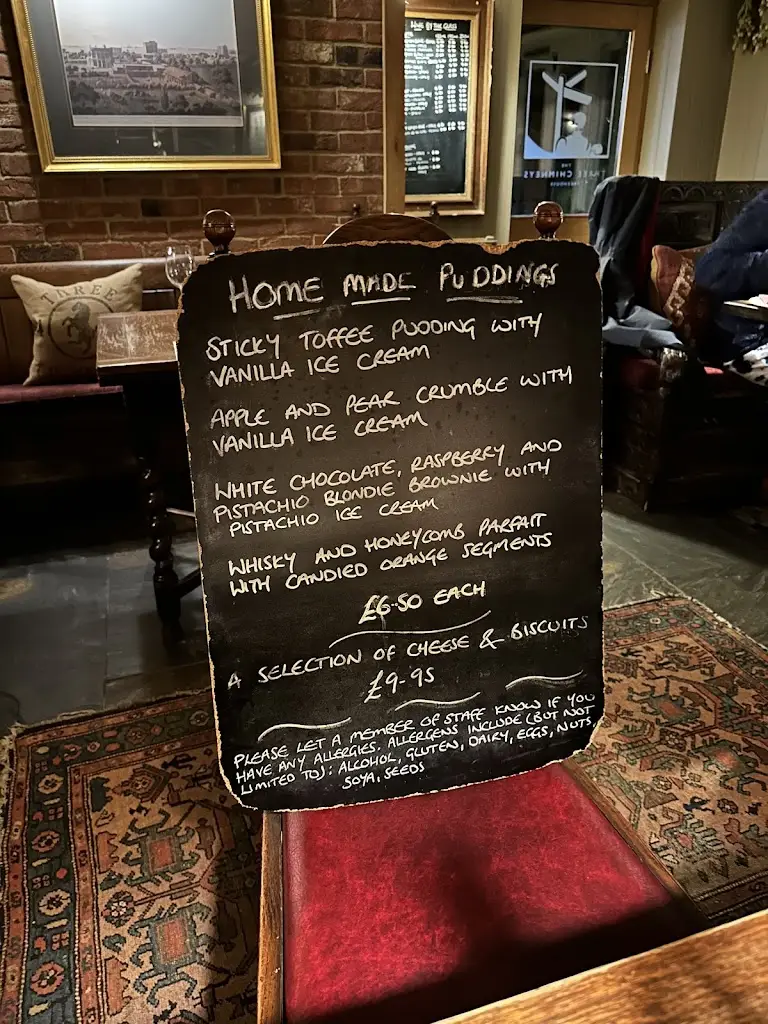 WINE BY THE GLASS
THE
THREE CHIMNEYS
THREE
HOME MADE PUDDINGS
STICKY TOFFEE PUDDING WITH
VANILLA ICE CREAM
APPLE AND PEAR CRUMBLE WITH
VANILLA ICE CREAM
WHITE CHOCOLATE, RASPBERRY AND
PISTACHIO BLONDIE BROWNIE WITH
PISTACHIO ICE CREAM
WHISKY AND HONEYCOMB PARFAIT
WITH CANDIED ORANGE SEGMENTS
£6.50 EACH
A SELECTION OF CHEESE & BISCUITS
£9.95
PLEASE LET A MEMBER OF STAFF KNOW IF YOU
HAVE ANY ALLERGIES. ALLERGENS INCLUDE (BUT NOT
LIMITED TO): ALCOHOL, GLUTEN, DAIRY, EGGS, NUTS,
SOYA, SEEDS